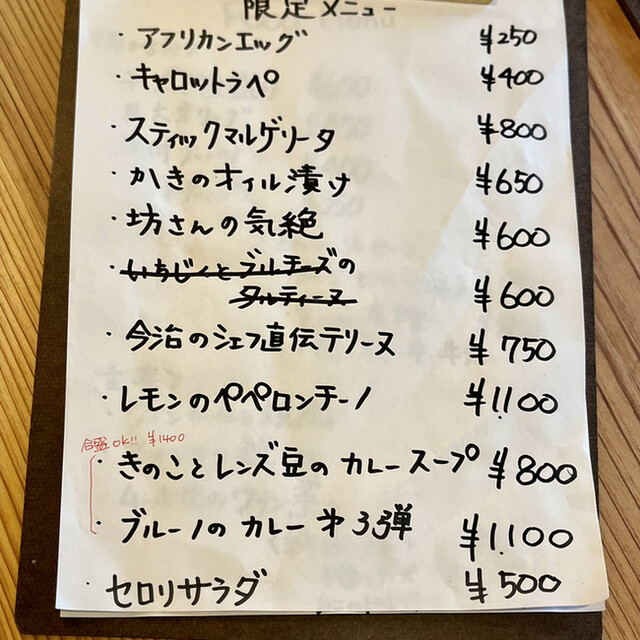 限定メニュー
・アフリカンエッグ ¥250
・キャロットラペ ¥400
・スティックマルゲリータ ¥800
・かきのオイル漬け ¥650
・坊さんの気絶 ¥600
・いちじくとブルーチーズの
タルティーヌ ¥600
・今治のシェフ直伝テリーヌ ¥750
・レモンのペペロンチーノ ¥1,100
合盛OK!! ¥1400
・きのことレンズ豆のカレースープ ¥800
・ブルーノのカレー 第33弾 ¥1,100
・セロリサラダ ¥500